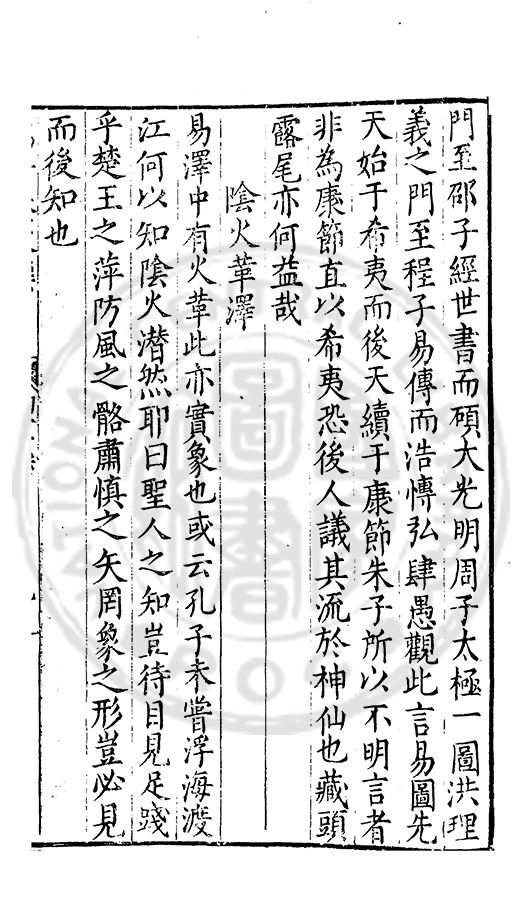 門至邵子經世書而碩大光明周子太極一圖洪理
義之門至程子易傳而浩慱弘肆愚觀此言易圖先
天始于希夷而後天續于康節朱子所以不明言者
非為康節直以希夷恐後人議其流於神仙也藏頭
露尾亦何益哉
隂火革澤
易澤中有火革此亦實象也或云孔子未嘗浮海渡
江何以知隂火潜然耶曰聖人之知豈待目見足踐
乎楚王之萍防風之骼肅慎之矢罔象之形豈必見
而後知也